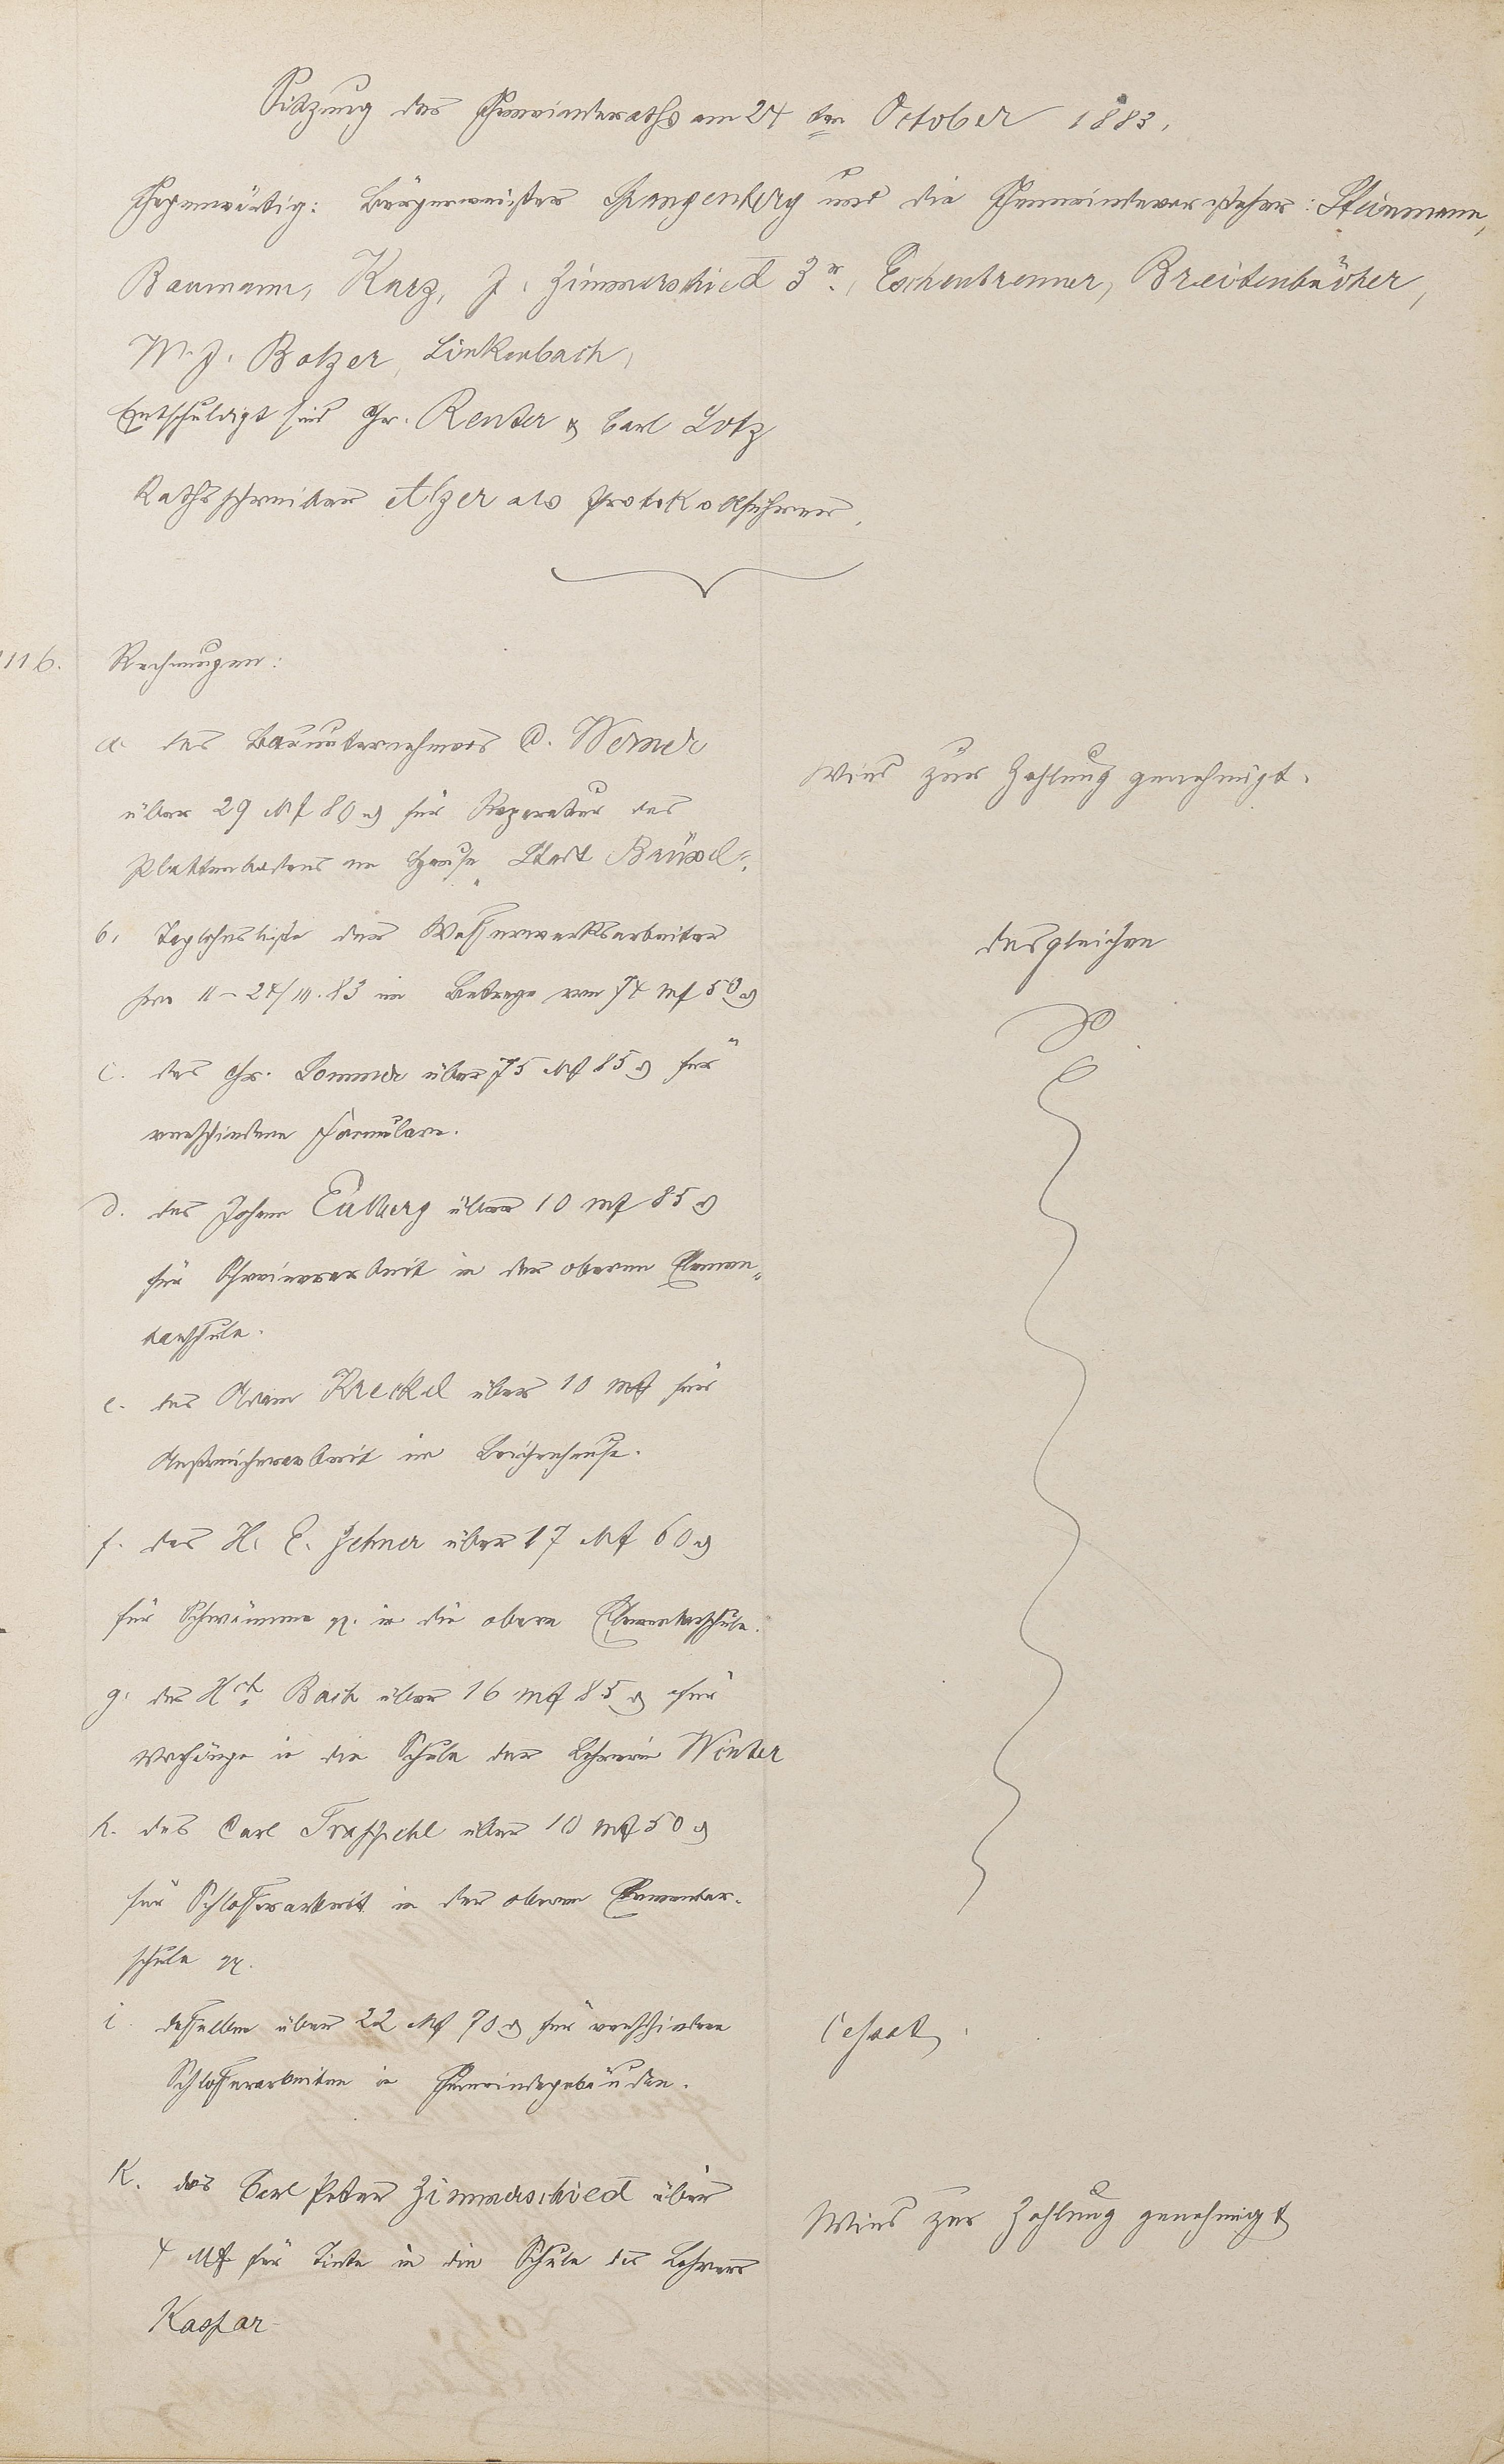 Sitzung des Gemeinderaths am 24ten October 1883.
Gegenwärtig: Bürgermeister Spangenberg und die Gemeindevorsteher: Steinmann,
Baumann, Kurz, J. Zimmerschied 3r., Eschenbrenner, Breitenbücher,
W. J. Balzer, Linkenbach,
Entschuldigt sind Chr. Reuter & Carl Lotz
Rathsschreiber Alzer als Protokollführer.
1116. Rechnungen:
a. des Bauunternehmers C. Werner
über 29 Mk 80 ₰ für Reparatur des
Plattenbodens im Hause „Stadt Brüssel“.
Wird zur Zahlung genehmigt.
b. Taglohnsliste der Wasserwerksarbeiter
pro 11–24/10.83 im Betrage von 74 Mk 50 ₰
desgleichen
c. des Chr. Sommer über 75 Mk 85 ₰ für
verschiedene Formulare.
do
d. des Johann Eulberg über 10 Mk 85 ₰
für Schreinerarbeit in der oberen Elemen-
tarschule.
e. des Adam Kreckel über 10 Mk für
Anstreicherarbeit im Leichenhause.
f. des H. C. Zehner über 17 Mk 60 ₰
für Schwämme pp. in die obere Elementarschule.
g. des Hch. Bach über 16 Mk 85 ₰ für
Vorhänge in die Schule der Lehrerin Winter
h. des Carl Trappehl über 10 Mk 50 ₰
für Schlosserarbeit in der oberen Elementar-
schule pp.
i. desselben über 22 Mk 70 ₰ für verschiedene
Schlosserarbeiten in Gemeindegebäuden.
Cessat.
K. des Carl Peter Zimmerschied über
4 Mk für Tinte in die Schule des Lehrers
Kaspar
Wird zur Zahlung genehmigt